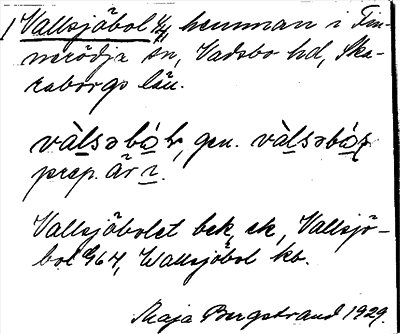 Vallsjöbol 1/4, hemman i Fin-
nerödja sn, Vadsbo hd, Ska-
raborgs län.
vàlsəbó̤ł, gen. vàlsəbó̤ş
prep. är ı.
Vallsjöbolet bek, ek, Vallsjö-
bol G64, Wallsjöbol kb.
Maja Bergstrand 1929.